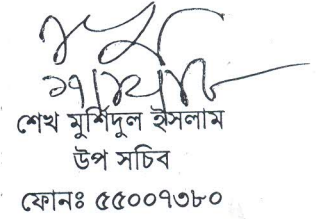 শেখ মুর্শিদুল ইসলাম
উপ সচিব
ফোনঃ ৫৫০০৭৩৮০